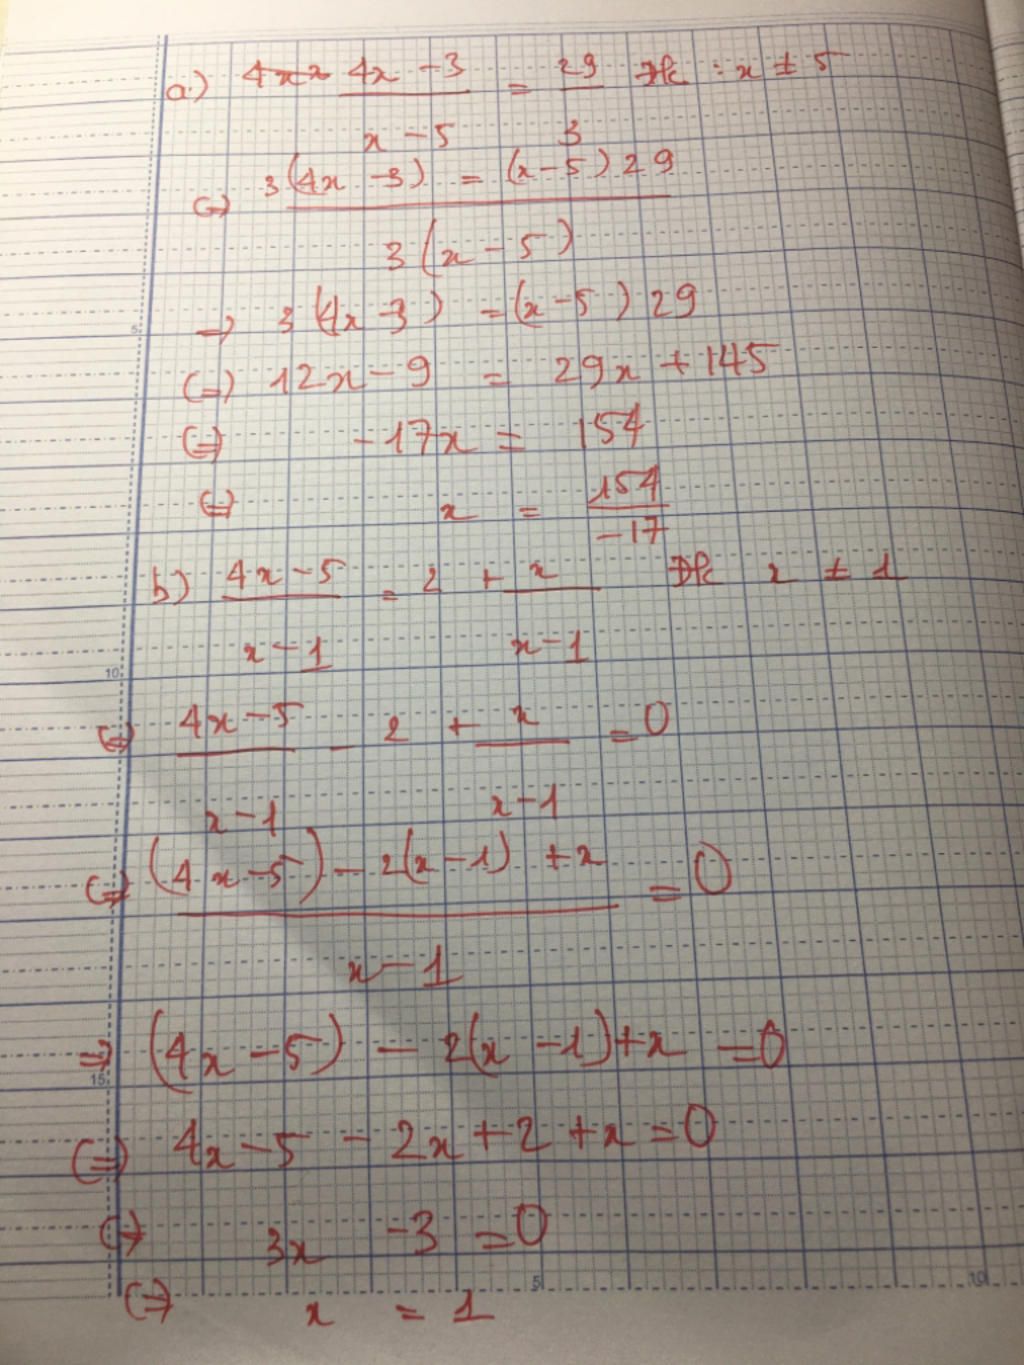 a) 4x x 4x - 3 / x - 5 = 29 / 3 Đk : x ≠ 5
(=) 3(4x - 3) = (x - 5) 29 / 3(x - 5)
=> 3(4x - 3) = (x - 5) 29
(=) 12x - 9 = 29x + 145
(=) -17x = 154
(=) x = 154 / -17
b) 4x - 5 / x - 1 = 2 + x / x - 1 Đk x ≠ 1
(=) 4x - 5 / x - 1 - 2 + x / x - 1 = 0
(=) (4x - 5) - 2(x - 1) + x / x - 1 = 0
=> (4x - 5) - 2(x - 1) + x = 0
(=) 4x - 5 - 2x + 2 + x = 0
(=) 3x - 3 = 0
(=) x = 1
5
10
15
5
10